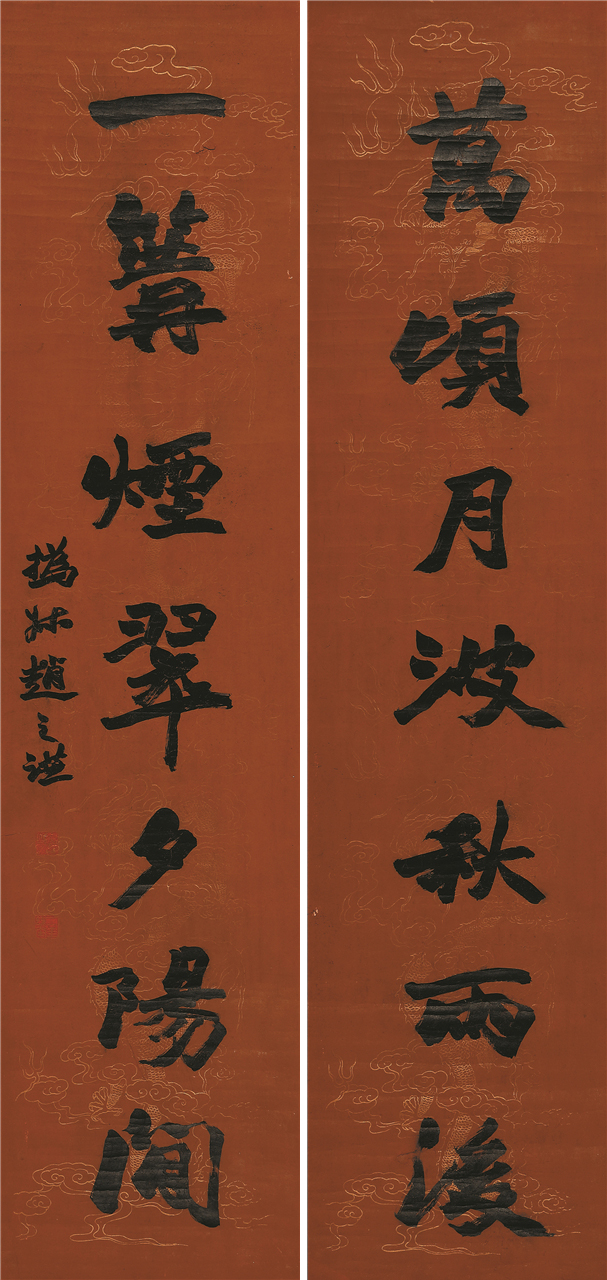 萬頃月波秋雨後
一篝煙翠夕陽閒
撝叔趙之謙